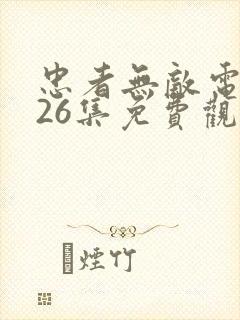 忠者無敵電
26集免費觀
煙竹